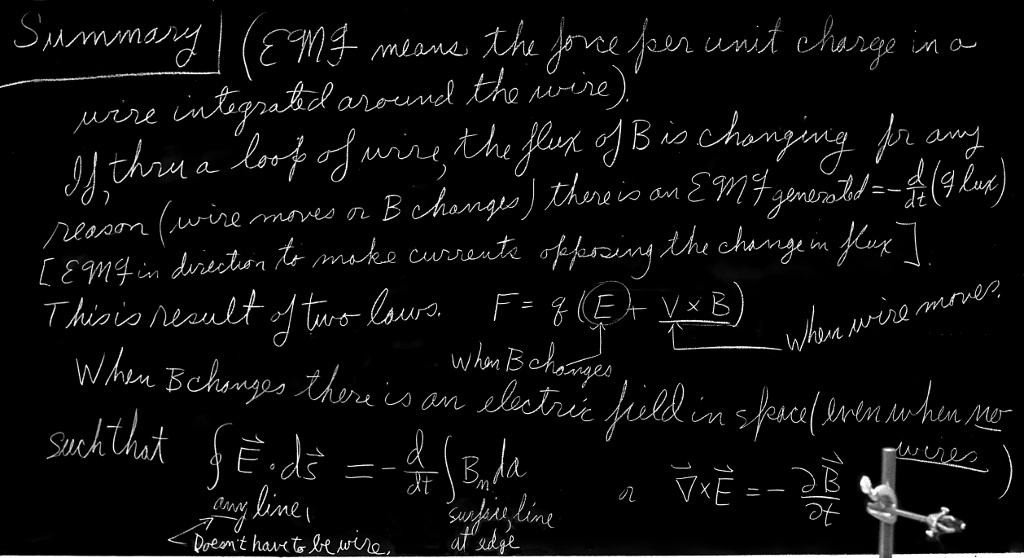 Summary (EMF means the force per unit charge in a
wire integrated around the wire).
If, thru a loop of wire, the flux of B is changing for any
reason (wire moves or B changes) there is an EMF generated = - d/dt (flux)
[EMF in direction to make currents opposing the change in flux].
This is result of two laws. F = q (E + V × B)
When wire moves.
when B changes
When B changes there is an electric field in space (even when no
wires)
such that ∮ E⃗ · ds⃗ = - d/dt ∫ Bₙ da or ∇⃗ × E⃗ = - ∂B⃗/∂t
any line, surface, line
Doesn't have to be wire. at edge